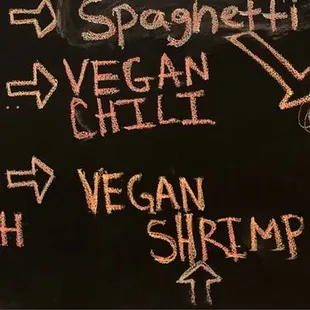 Spaghetti
VEGAN
CHILI
VEGAN
H SHRIMP